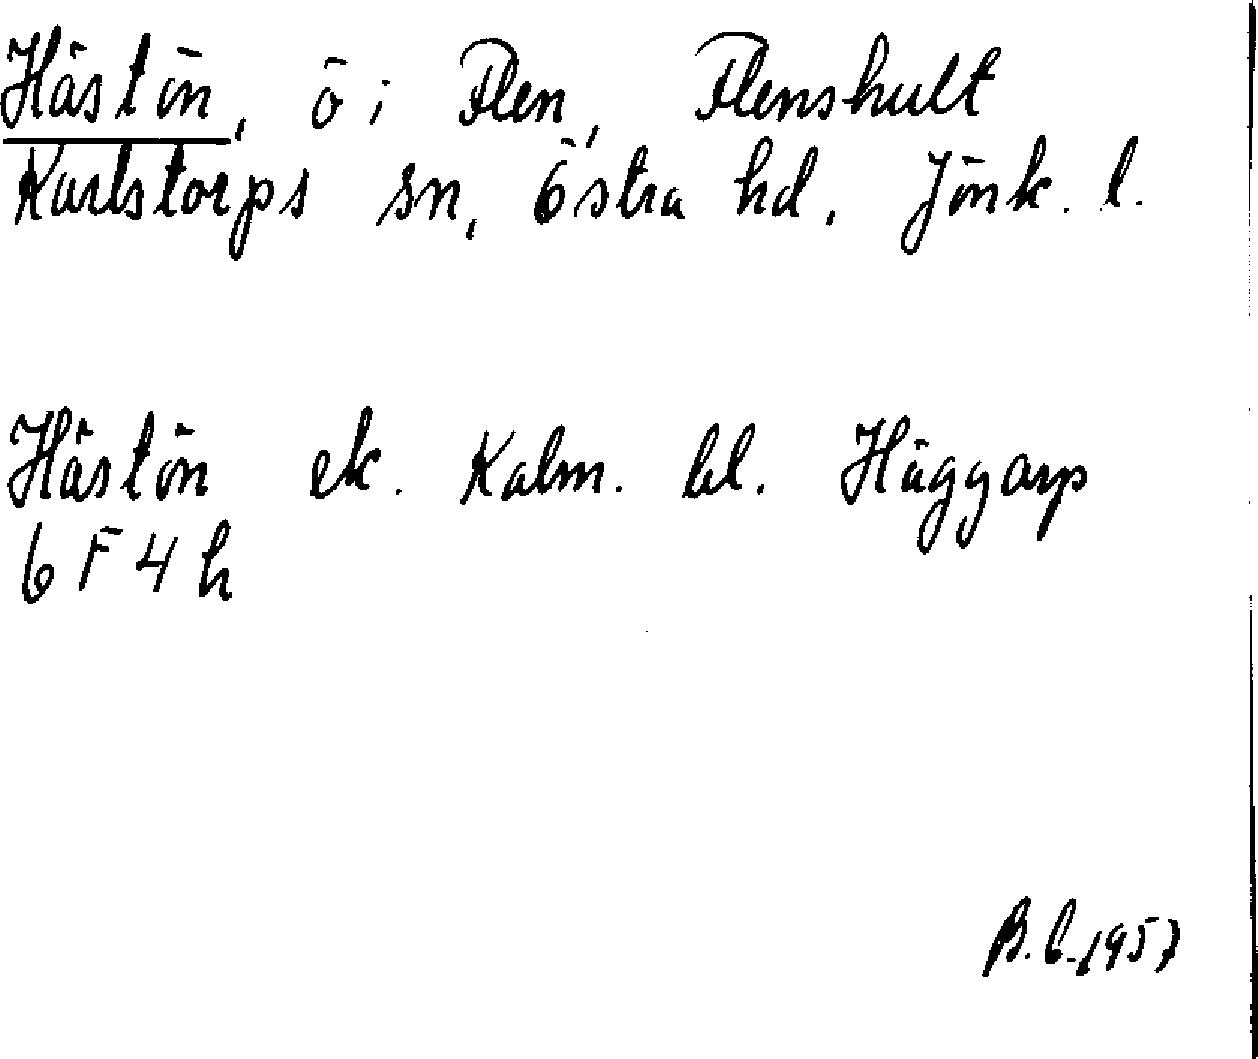 Hästön, ö i Flen, Flenshult
Karlstorps sn, Östra hd, Jönk. l.
Hästön ek. Kalm. bl. Häggarp
6 F 4 h
B.C. 1957